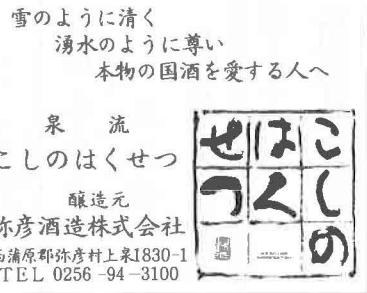 雪のように清く
湧水のように尊い
本物の国酒を愛する人へ
泉流
こしのはくせつ
醸造元
弥彦酒造株式会社
西蒲原郡弥彦村上泉1830-1
TEL 0256-94-3100
こしの
はく
せつ